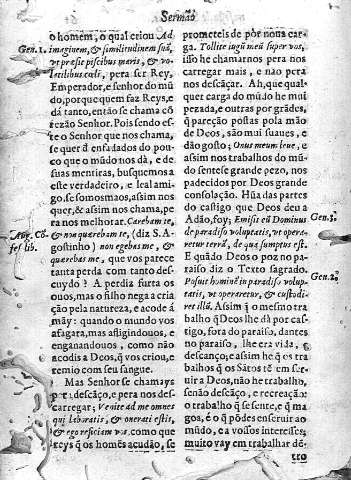 Sermaõ
o homem, o qual criou Ad
Gen.1. imaginem, & similitudinem suã,
vt præsit piscibus maris, & vo-
latilibus cæli, pera ser Rey,
Emperador, e senhor do mũ
do, porque quem faz Reys,
dá tanto, entaõ se chama cõ
rezão Senhor. Pois sendo es-
te o Senhor que nos chama,
se quer d' enfadados do pou-
co que o mũdo nos dà, e de
suas mentiras, busquemos a
este verdadeiro, e leal ami-
go. se somos maos, assim nos
quer, & assim nos chama, pe
ra nos melhorar. Quærebam te,
Aug. Cõ- & non quærebam te, (diz S. A-
fes. lib. gostinho) non egebas me, &
quærebas me, que vos parece
tanta perda com tanto des-
cuydo? A perdiz furta os
ouos, mas o filho nega a cria
ção pela natureza, e acode á
mãy: quando o mundo vos
afagara, mas afligindouos, e
enganandouos, como não
acodis a Deus, q̃ vos criou, e
remio com seu sangue.
Mas Senhor se chamays
pera descãço, e pera nos des-
carregar; Venite ad me omnes
qui laboratis, & onerati estis,
& ego reficiam vos. como que
reys q̃ os homẽs acudão, se
prometeis de pòr noua car-
ga. Tollite iugũ meũ super vos,
isso he chamarnos pera nos
carregar mais, e não pera
nos descãçar. Ah, que qual-
quer carga do mũdo he mui
pezada, e outras por grãdes,
q̃ pareção postas pola mão
de Deos, são mui suaues, e
dão gosto; Onus meum leue, e
assim nos trabalhos do mũ-
do sentese grande pezo, nos
padecidos por Deos grande
consolação. Hũa das partes
do castigo que Deus deu a
Adão, foy; Emisit eũ Dominus Gen.3.
de paradiso voluptatis, vt opera-
retur terrã, de qua sumptus est.
E quãdo Deos o poz no pa-
raiso diz o Texto sagrado. Gen.2.
Posuit hominẽ in paradiso volup-
tatis, vt operaretur, & custodi-
ret illũ. Assim q̃ o mesmo tra
balho q̃ Deos lhe dà por cas-
tigo, fora do paraiso, dantes
no paraiso, lhe era vida,
descanço; e assim he q̃ es tra
balhos q̃ os Sãtos tẽ em ser-
uir a Deus, não he trabalho,
senão descãço, e recreação:
o trabalho q̃ se sente, e q̃ ma
goa, é o q̃ põdes em seruir ao
mũdo, e a vossos interesses;
muito vay em trabalhar de-
tro